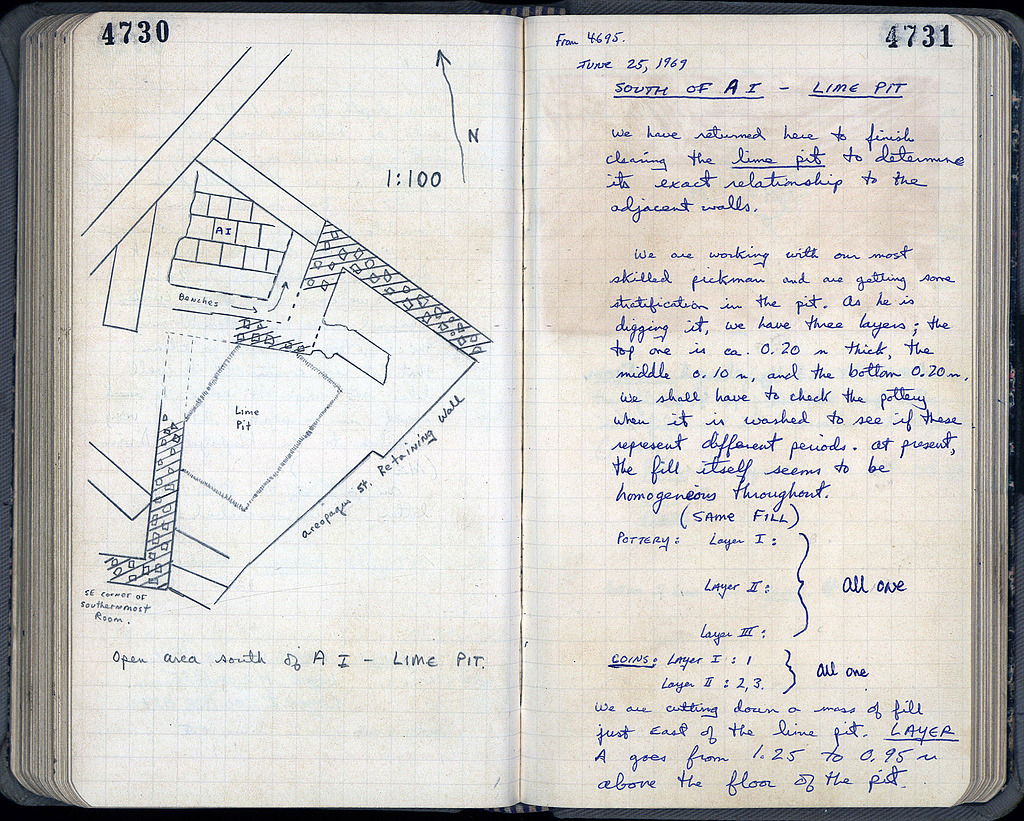 4730
N
1:100
AI
Benches
Lime
Pit
Areopagus St. Retaining Wall
SE corner of
Southernmost
Room.
Open area south of A I - LIME PIT.
4731
From 4695.
JUNE 25, 1969
SOUTH OF A I - LIME PIT
We have returned here to finish
clearing the lime pit to determine
its exact relationship to the
adjacent walls.
We are working with our most
skilled pickman and are getting some
stratification in the pit. As he is
digging it, we have three layers; the
top one is ca. 0.20 m thick, the
middle 0.10 m, and the bottom 0.20 m.
We shall have to check the pottery
when it is washed to see if these
represent different periods. At present,
the fill itself seems to be
homogeneous throughout.
(SAME FILL)
POTTERY: Layer I:
Layer II: All one
Layer III:
COINS: Layer I: 1
Layer II: 2,3. All one
We are cutting down a mass of fill
just East of the lime pit. LAYER
A goes from 1.25 to 0.95 m
above the floor of the pit.